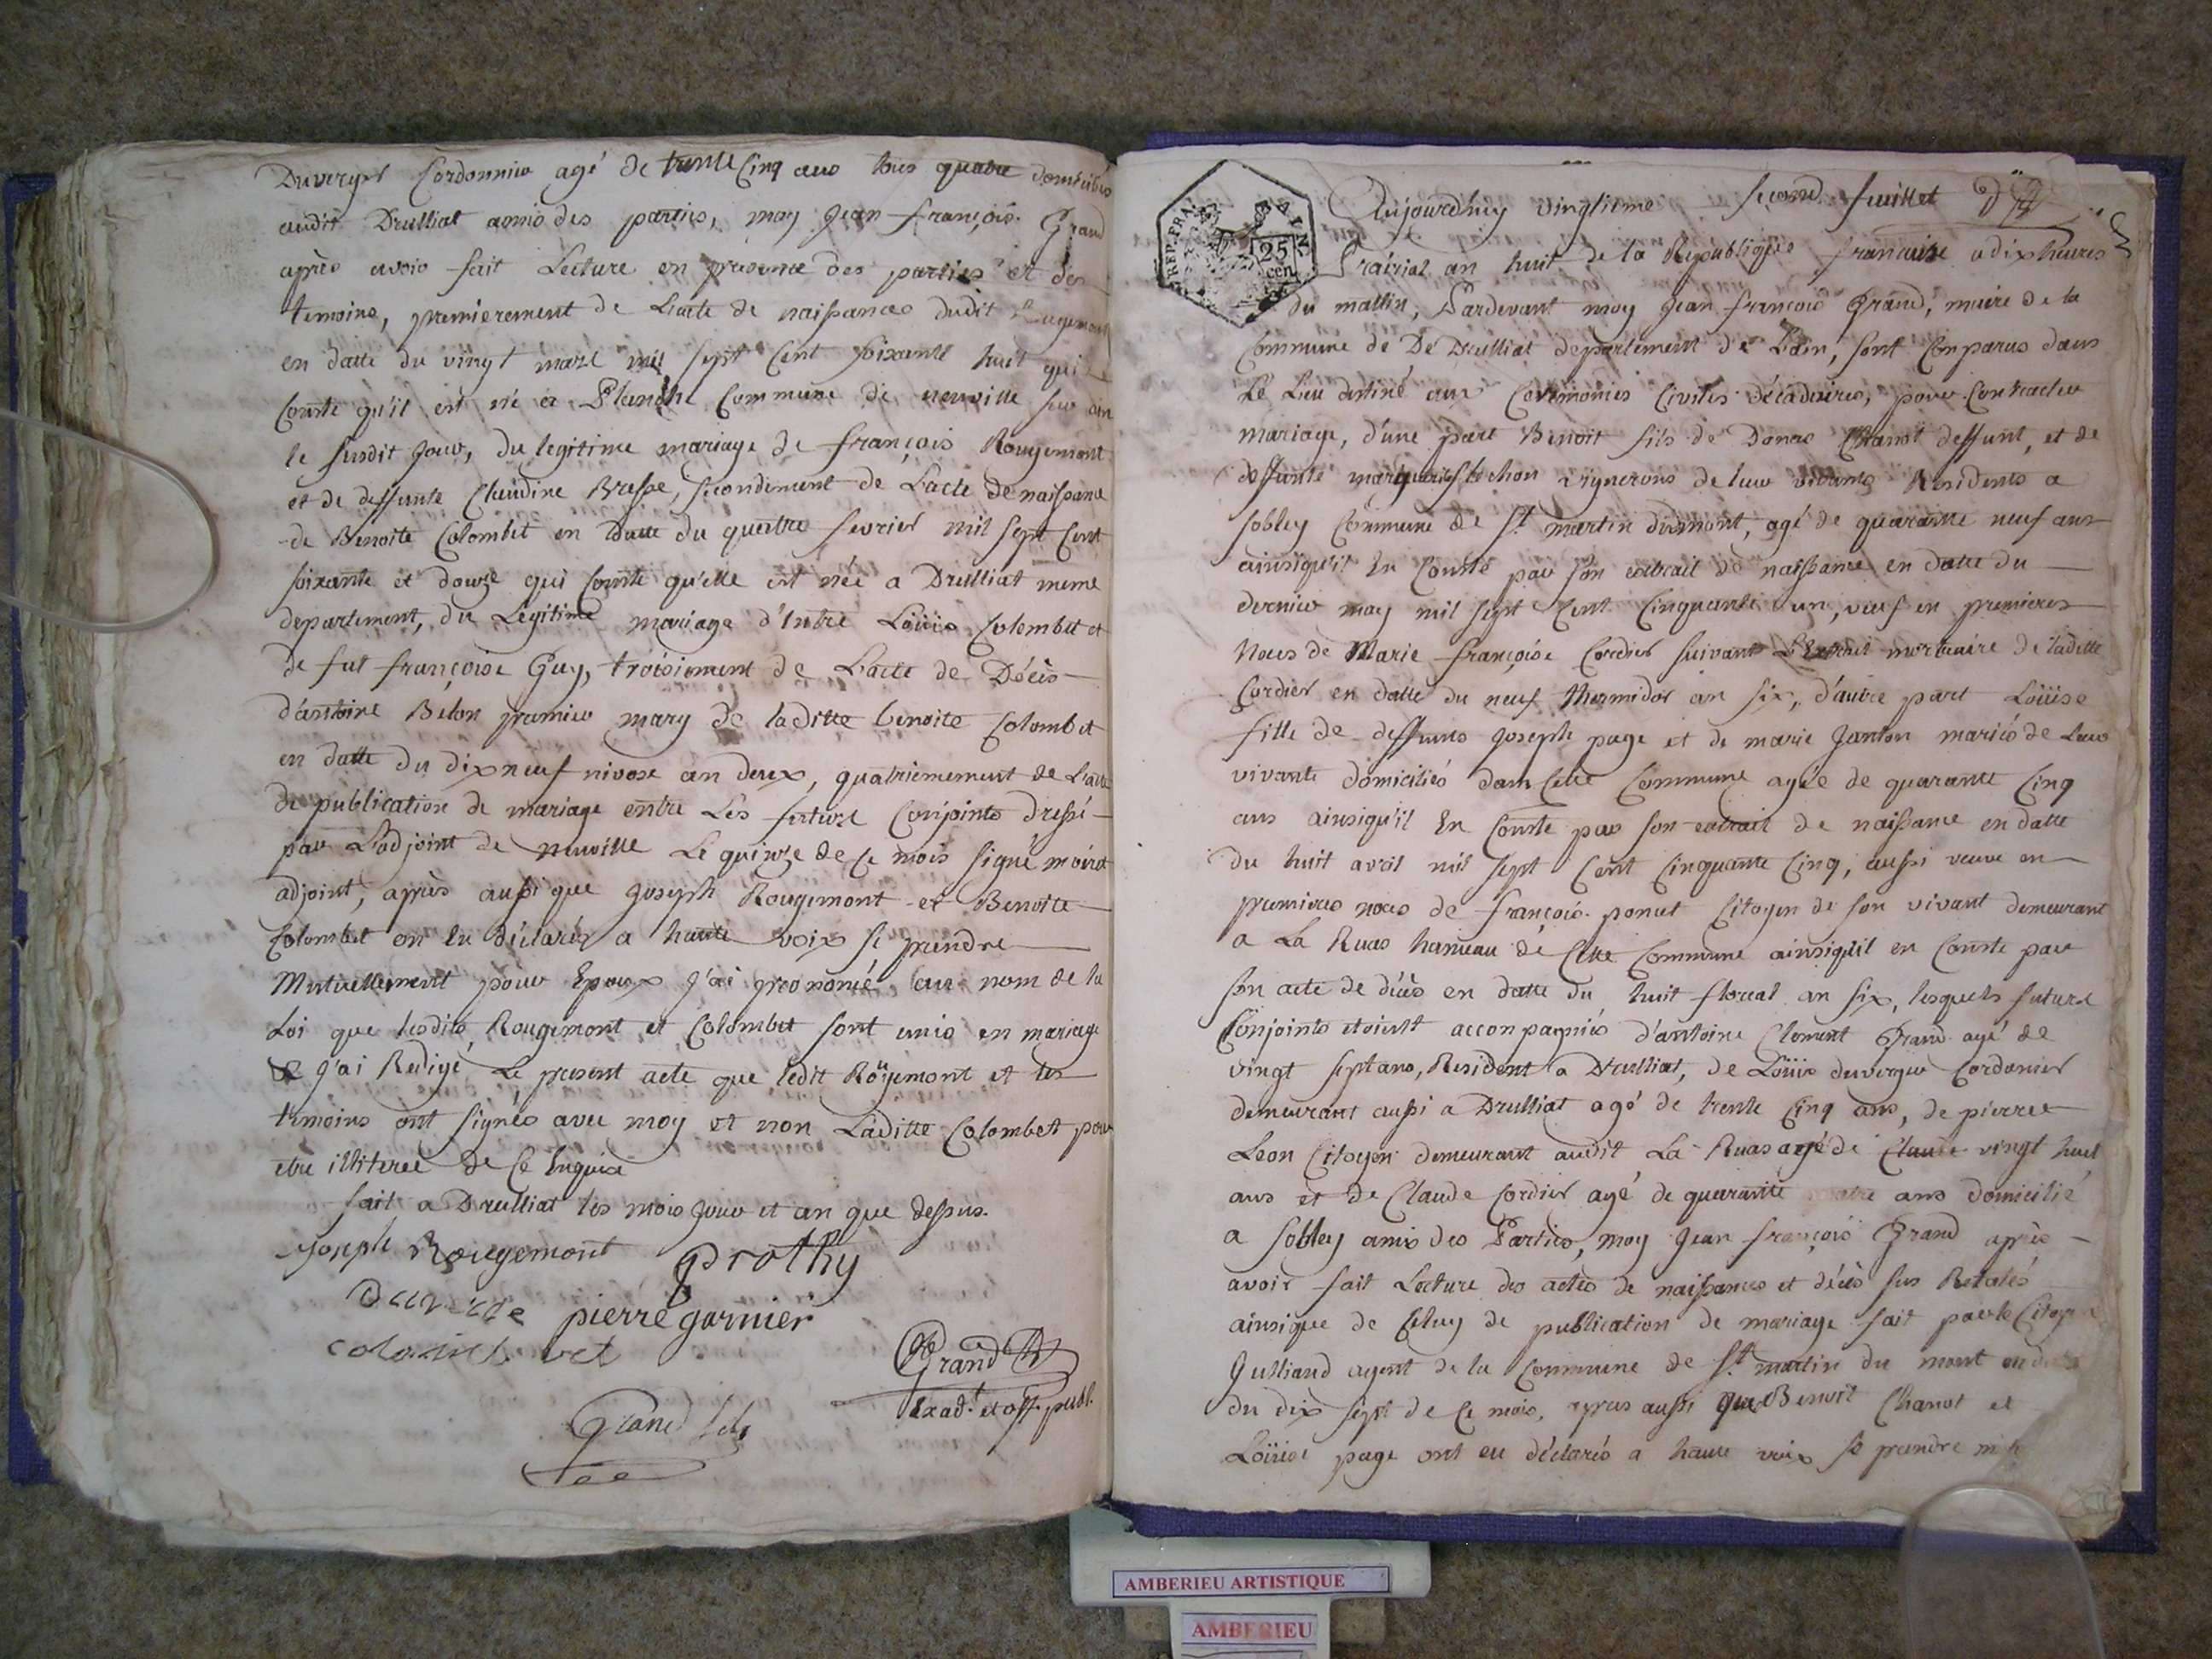 Duverger Cordonnier agé de trente Cinq ans tous quatre domiciliés
audit Drulliat amis des parties, moy Jean françois Grand
après avoir fait Lecture en presence des parties et des
temoins, premierement de L'acte de naissance dudit Rougemont
en datte du vingt mars mil sept Cent soixante huit qui
Conste qu'il est né a Planche Commune de neuville sur ain
le susdit jour, du legitime mariage de françois Rougemont
et de deffunte Claudine Bresse, secondement de L'acte de naissance
de Benoite Colombet en Datte du quattre fevrier mil sept Cent
soixante et douze qui Conste qu'elle est née a Drulliat meme
departement, du Légitime mariage d'Entre Loüis Colombet et
de fut françoise Guy, troisiement de L'acte de Décès
d'antoine Belon premier mary de laditte benoite Colombet
en datte du dix neuf nivose an deux, quatriemement de L'acte
de publication de mariage entre Les futurs Conjoints dressé
par L'adjoint de neuville Le quinze de Ce mois signé moiret
adjoint, après aussi que Joseph Rougemont et Benoite
Colombet on Eu Déclarés a haute voix se prendre
Mutuellement pour Epoux J'ai prononcé au nom de la
Loi que lesdits Rougemont et Colombet sont unis en mariage
& J'ai Redigé Le present acte que ledit Rougemont et les
temoins ont signés avec moy et non Laditte Colombet pour
etre illiterée de Ce Enquise
fait a Drulliat les mois jour et an que dessus.
Joseph Rougemont prothy
pierre garnier
Grand
Exad.t et off. publ.
Grand fils
REP. FRA.
AIN
25
cen
second feuillet
Aujourdhuy vingtieme
Prairial an huit de la Republique francaise a dix heures
du mattin, Pardevant moy Jean françois Grand, maire de la
Commune de De Drulliat departement de L'ain, sont Conparus dans
Le Lieu destiné aux Cerimonies Civiles décadaires, pour Contracter
mariage, d'une part Benoit fils de Donas Chanot deffunt, et de
deffunte marguerite vignerons de leur vivants Residents a
sobley Commune de St. martin dumont, agé de quarante neuf ans
ainsiqu'il En Conste par son extrait de naissance en datte du
dernier may mil sept Cent Cinquante un, veuf en premieres
Noces de Marie françoise Cordier suivant L'Extrait mortuaire de laditte
Cordier en datte du neuf thermidor an six, d'autre part Loüise
fille de deffunts Joseph page et de marie Janton mariés de Leur
vivants domiciliés dans Cette Commune agée de quarante Cinq
ans ainsiqu'il En Conste par son extrait de naissance en datte
du huit avril mil sept Cent Cinquante Cinq, aussi veuve en
premieres noces de françois poncet Citoyen de son vivant demeurant
a La Ruas hameau de Cette Commune ainsiqu'il en Conste par
son acte de décès en datte du huit floreal an six, lesquels futurs
Conjoints etoient acconpagnés d'antoine Clement Grand agé de
vingt sept ans, Resident a Drulliat, de Loüis duverger Cordonier
demeurant aussi a Drulliat agé de trente Cinq ans, de pierre
Leon Citoyen demeurant audit La Ruas agé de Claude vingt huit
ans et de Claude Cordier agé de quarante ans domicilié
a sobley amis des Parties, moy Jean françois Grand après
avoir fait Lecture des actes de naissances et décès sus Relatés
ainsique de Celuy de publication de mariage fait par le Citoyen
Julliand agent de la Commune de St. martin du mont en datte
du dix sept de Ce mois, apres aussi que Benoit Chanot et
Loüise page ont eu déclarés a haute voix se prendre
AMBERIEU ARTISTIQUE
AMBERIEU